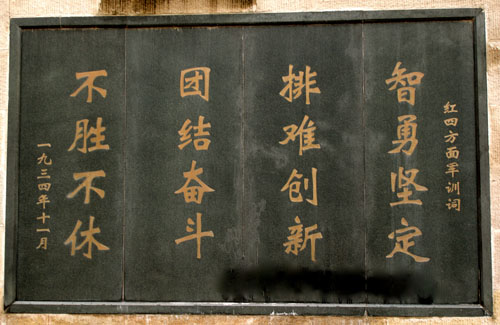 红四方面军训词
智勇坚定
排难创新
团结奋斗
不胜不休
一九三四年十一月